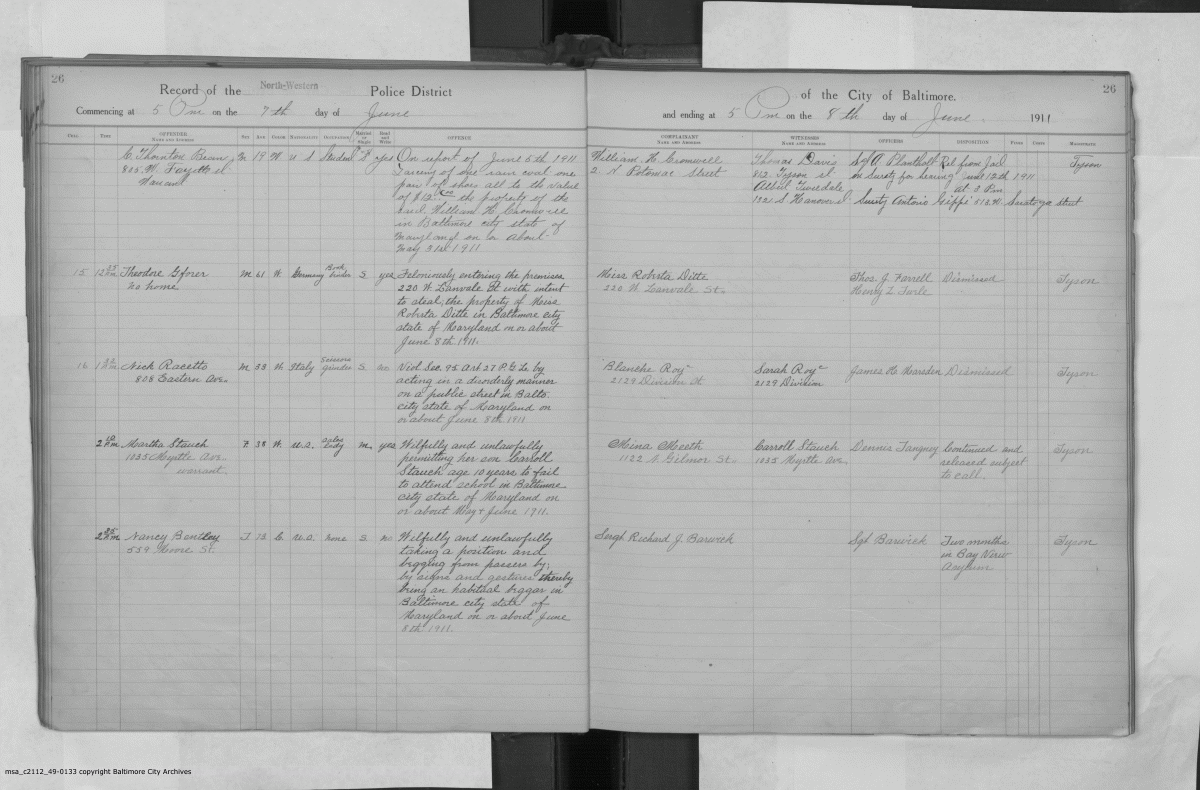 26
Record of the North-Western Police District
Commencing at 5 Pm on the 7th day of June
26
of the City of Baltimore.
and ending at 5 Pm on the 8th day of June 1911
CELL TIME OFFENDER NAME AND ADDRESS SEX AGE COLOR NATIONALITY OCCUPATION Married or Single Read and Write OFFENCE
COMPLAINANT NAME AND ADDRESS WITNESSES NAME AND ADDRESS OFFICERS DISPOSITION FINES COSTS MAGISTRATE
C. Thornton M 19 W U S Student S yes On report of June 5th 1911
805 W. Fayette st
Warrant
Larceny of one rain coat one
pair of shoes all to the value
of $12.00 the property of the
said William H Cromwell
in Baltimore city state of
Maryland on or about
May 31st 1911
William. H. Cromwell
2. N Potomac Street
Thomas Davis
812 Tyson st
Albert
1921 S Hanover St
Sgt A. Rel from Jail
on Surety for hearing June 12th 1911
at 3 Pm
Surety Antonio 513 W Saratoga street
Tyson
15 12 35 Pm Theodore Gforer M 61 W. Germany Book binder S yes Feloniously entering the premises
no home
220 W Lanvale St with intent
to steal, the property of Miss
Roberta Ditte in Baltimore city
state of Maryland on or about
June 8th 1911.
Miss Roberta Ditte
220 W Lanvale St.
Thos. J. Farrell Dismissed Tyson
Henry L
16 Nick Racetto M 38 W. Italy Scissors grinder S no Viol. Sec. 95 Art 27 P.G.L. by
808 Eastern Ave.
acting in a disorderly manner
on a public street in Balto.
city state of Maryland on
or about June 8th 1911
Blanche Roy c
2129 Division St
Sarah Roy c
2129 Division
James H. Marsden Dismissed Tyson
2 Pm Martha Stauch F. 38 W. U.S. sales lady M. yes Wilfully and unlawfully
1035 Myrtle Ave.
warrant.
permitting her son Carroll
Stauch age 10 years to fail
to attend school in Baltimore
city state of Maryland on
or about May + June 1911.
Meina Meeth
1122 N. Gilmor St.
Carroll Stauch
1035 Myrtle Ave.
Dennis Tangney Continued and
released subject
to call.
Tyson
2 35 Pm Nancy Bentley F C. U.S. none S. no Wilfully and unlawfully
559 Moore St.
taking a position and
begging from passers by,
by signs and gestures thereby
being an habitual beggar in
Baltimore city state of
Maryland on or about June
8th 1911.
Sergt Richard J. Barwick
Sgt Barwick Two months
in Bay View
Asylum
Tyson
msa_c2112_49-0133 copyright Baltimore City Archives